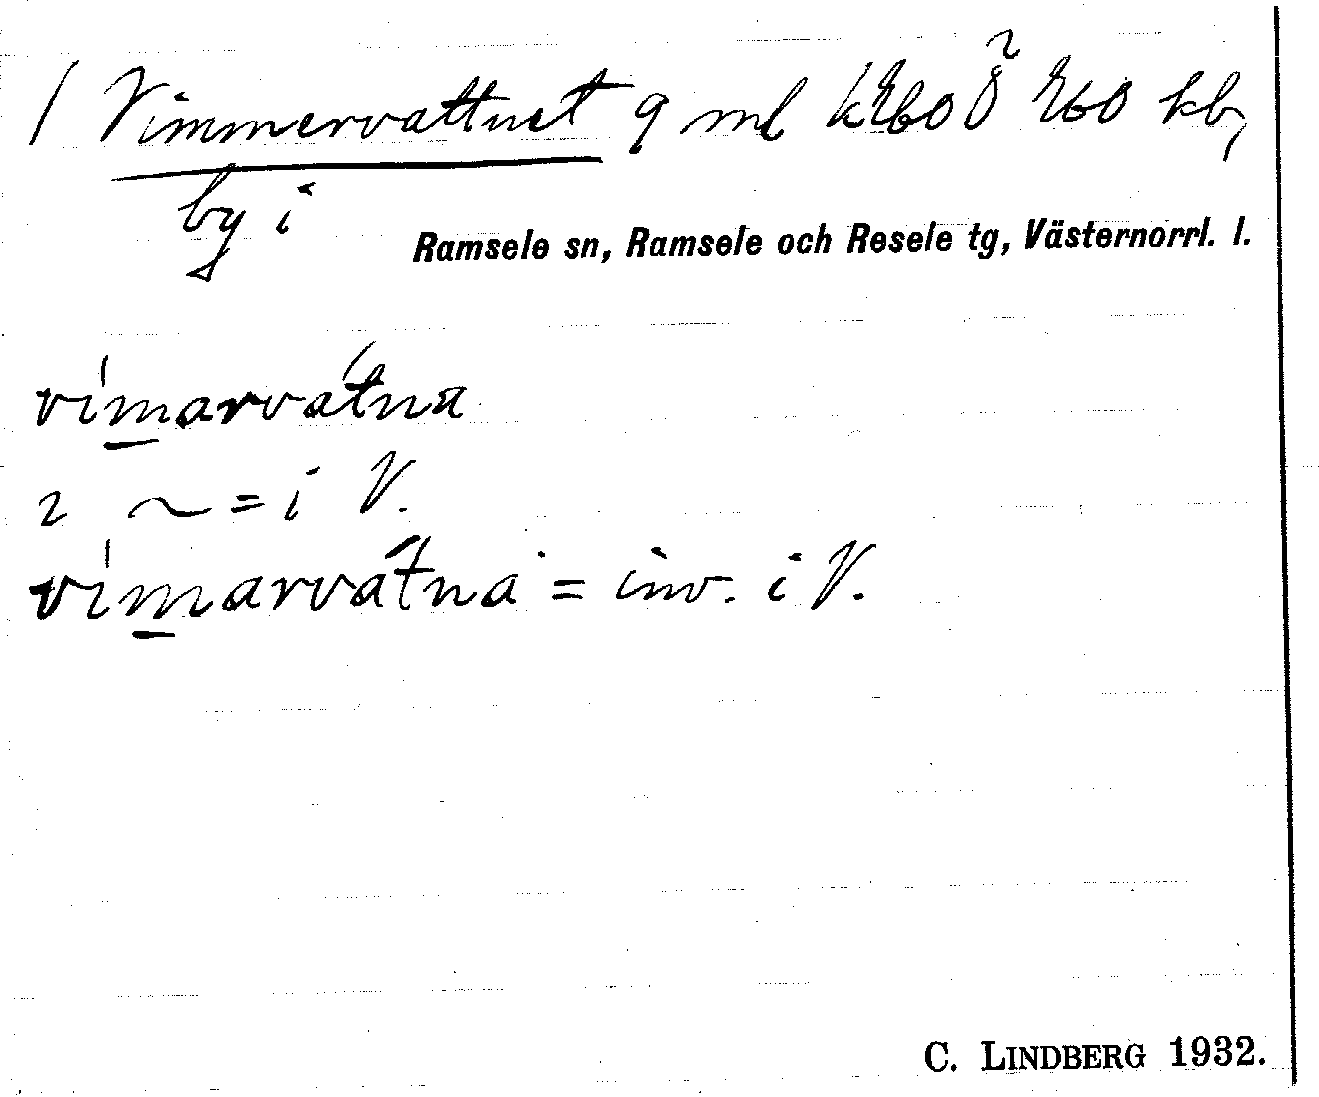 1 Vimmervattnet 9 ml kb,
by i
Ramsele sn, Ramsele och Resele tg, Västernorrl. l.
vimarvátna
2 ~ = i V.
vimarvátna = inv. i V.
C. LINDBERG 1932.